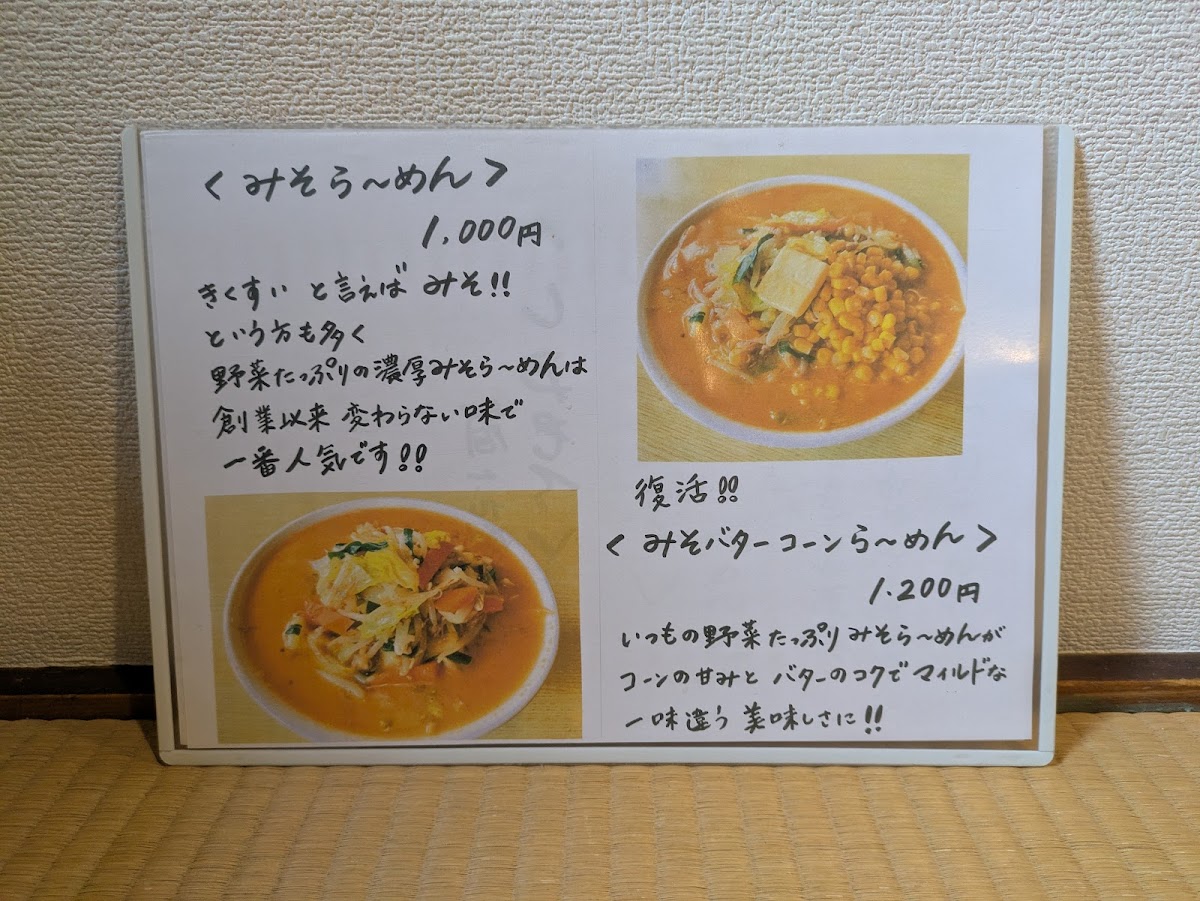 <みそら〜めん>
1,000円
きくすい と言えば みそ!!
という方も多く
野菜たっぷりの濃厚みそら〜めんは
創業以来 変わらない味で
一番人気です!!
復活!!
<みそバターコーンら〜めん>
1.200円
いつもの野菜たっぷりみそら〜めんが
コーンの甘みと バターのコクでマイルドな
一味違う 美味しさに!!